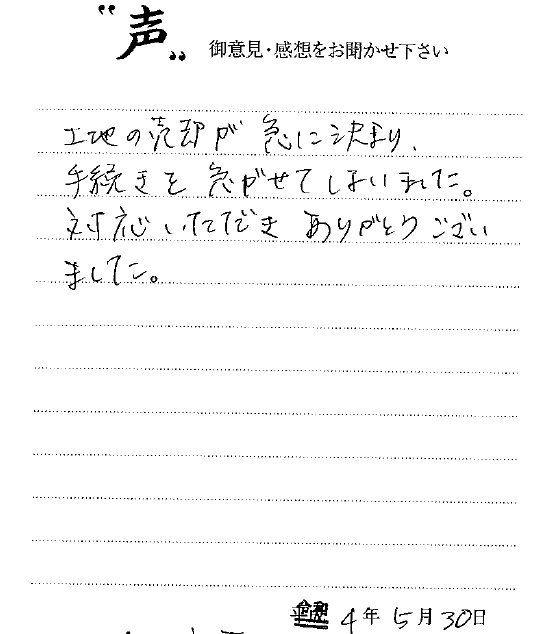 “声” 御意見・感想をお聞かせ下さい
土地の売却が 急に決まり、
手続きを 急がせてしまいました。
対応いただき ありがとうござい
ました。
4年 5月 30日